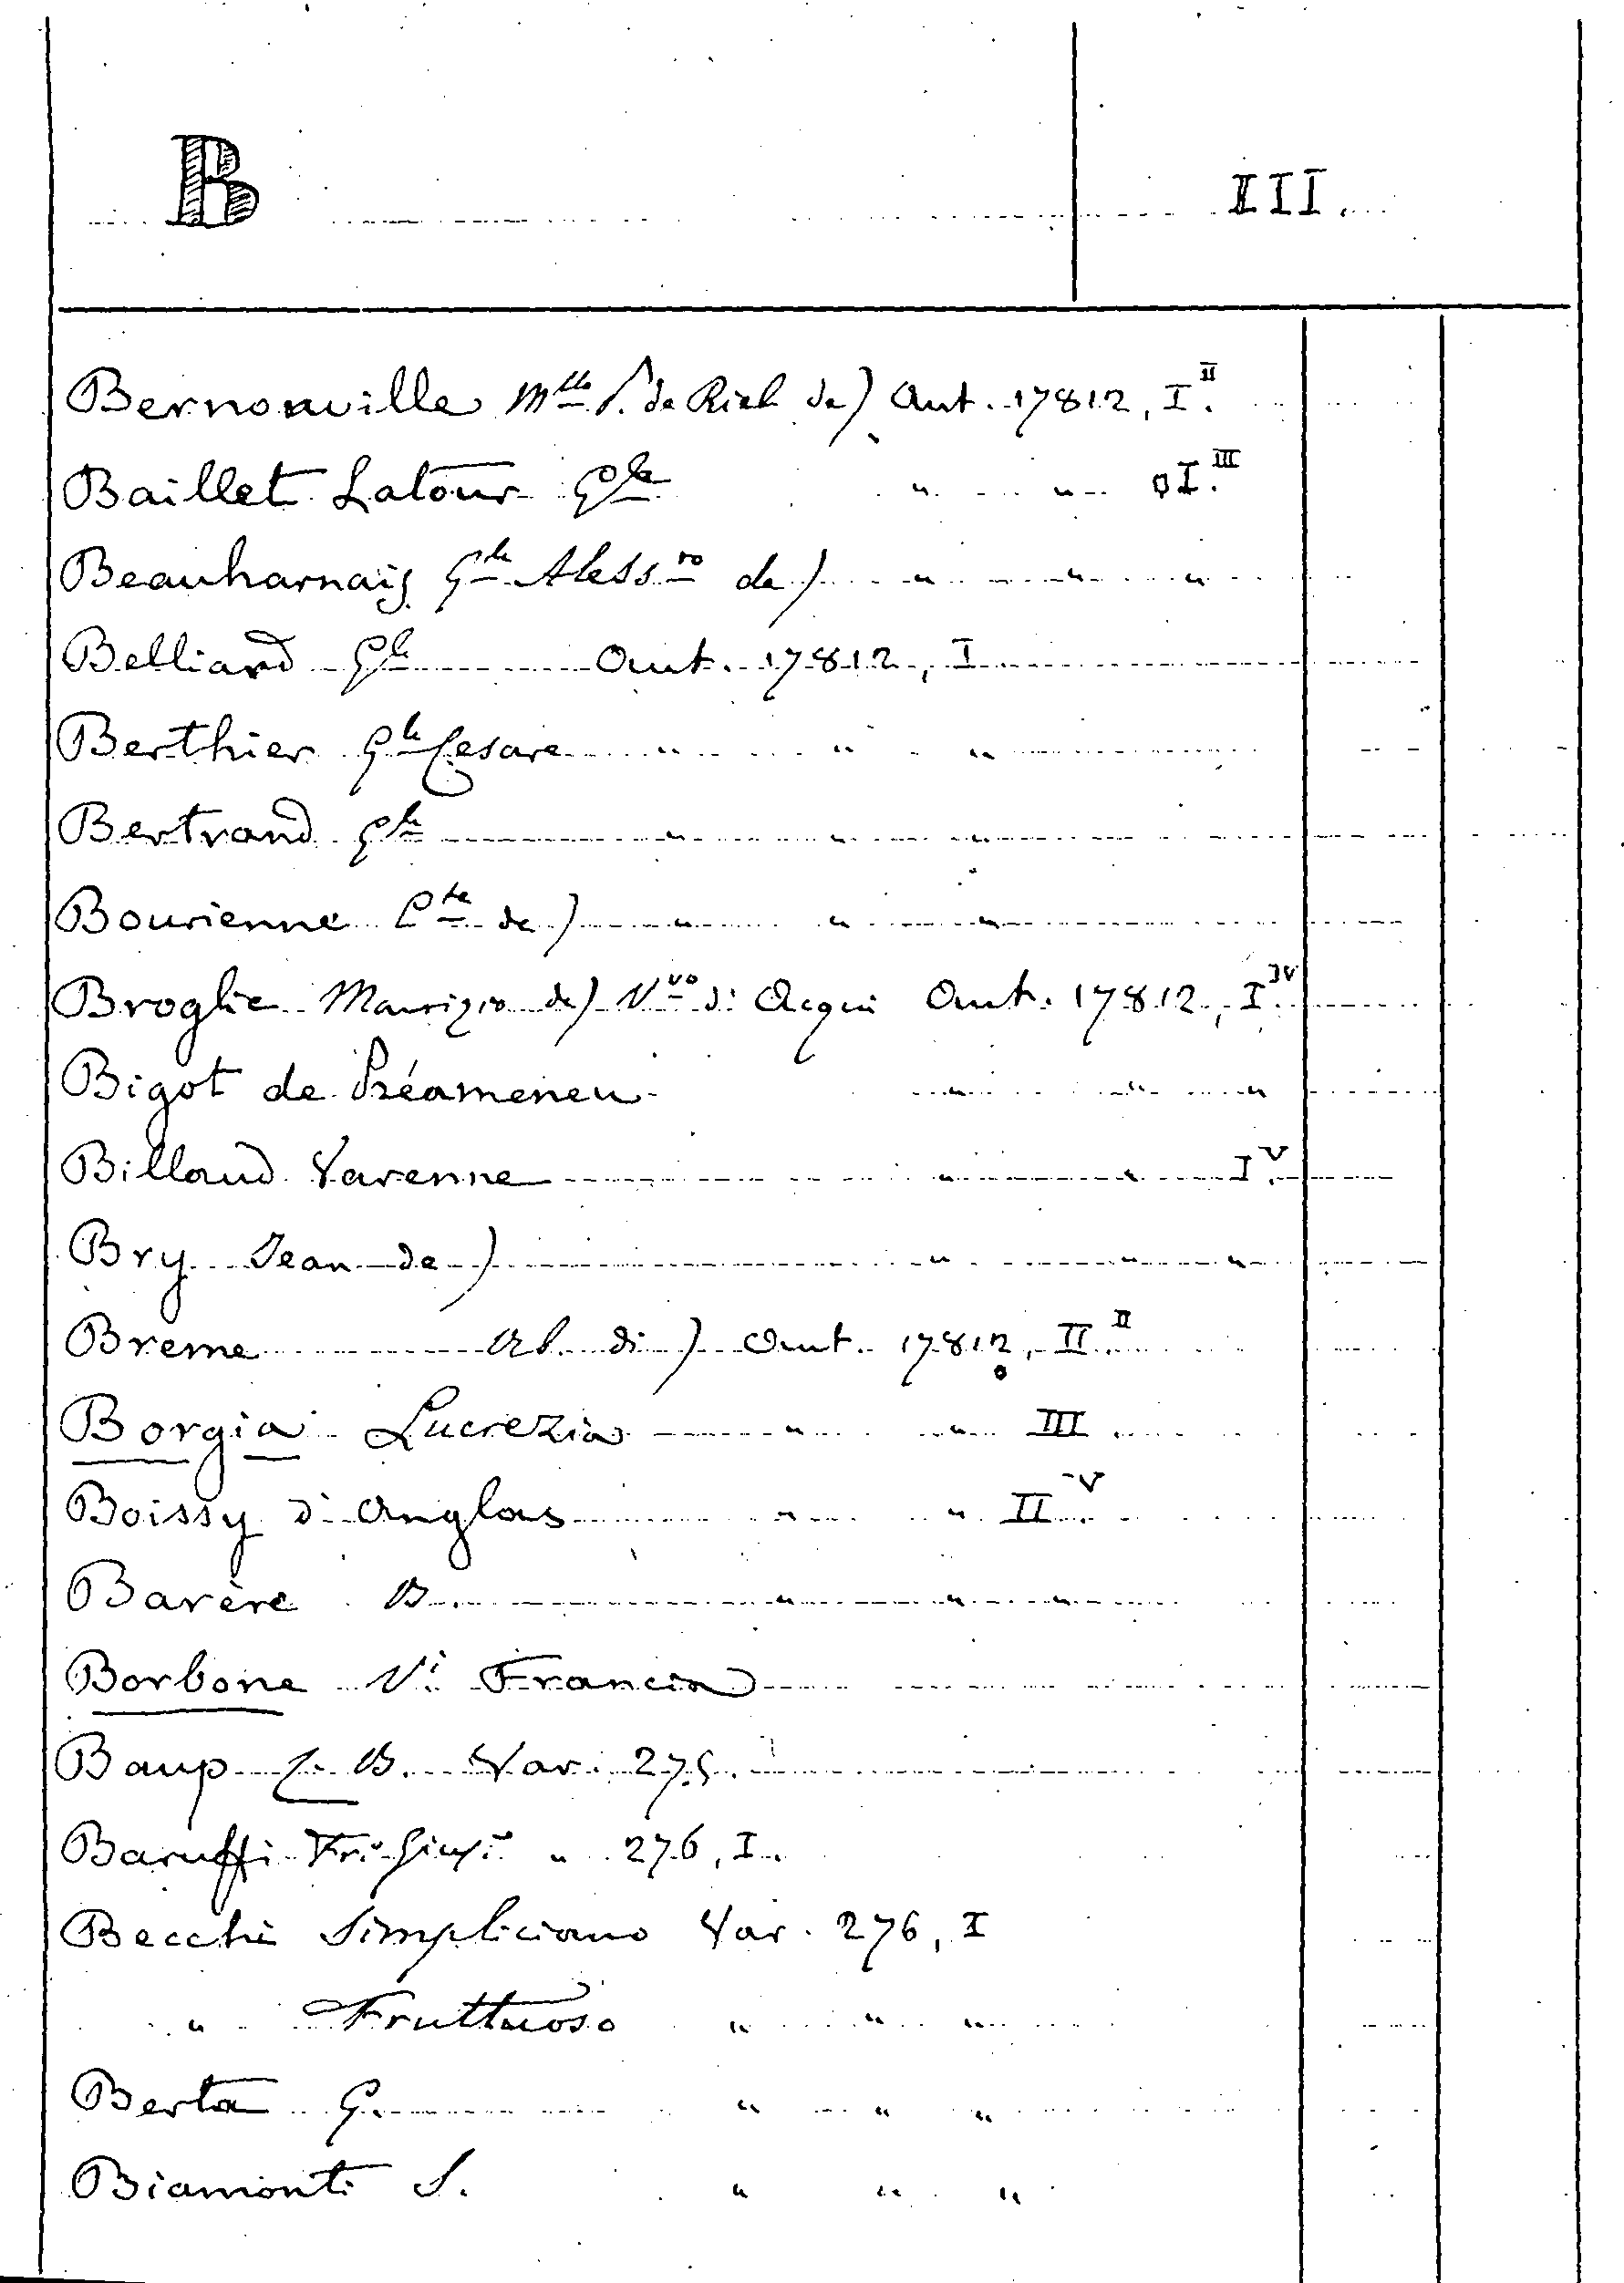 B III.
Bernonville Mllo P. de Riel de) Aut. 17812, I.II
Baillet Latour Gle " " I.III
Beauharnais Gle Alessro de) " " "
Belliard Gle Aut. 17812, I
Berthier Gle Cesare " " "
Bertrand Gle " " "
Bourienne Cte de) " " "
Broglie Maurizio de) Vvo di Acqui Aut. 17812, I.IV
Bigot de Préameneu " " "
Billaud Varenne " " I.V
Bry Jean de) " " "
Breme Ab. di) Aut. 17812, II.II
Borgia Lucrezia " " III
Boissy d'Anglas " " II.V
Barère B. " " "
Borbone Vi Francia
Baup C. B. Var. 275.
Baruffi " 276, I.
Becchi Simpliciano Var. 276, I
" Fruttuoso " " "
Berta G. " " "
Biamonti S. " " "